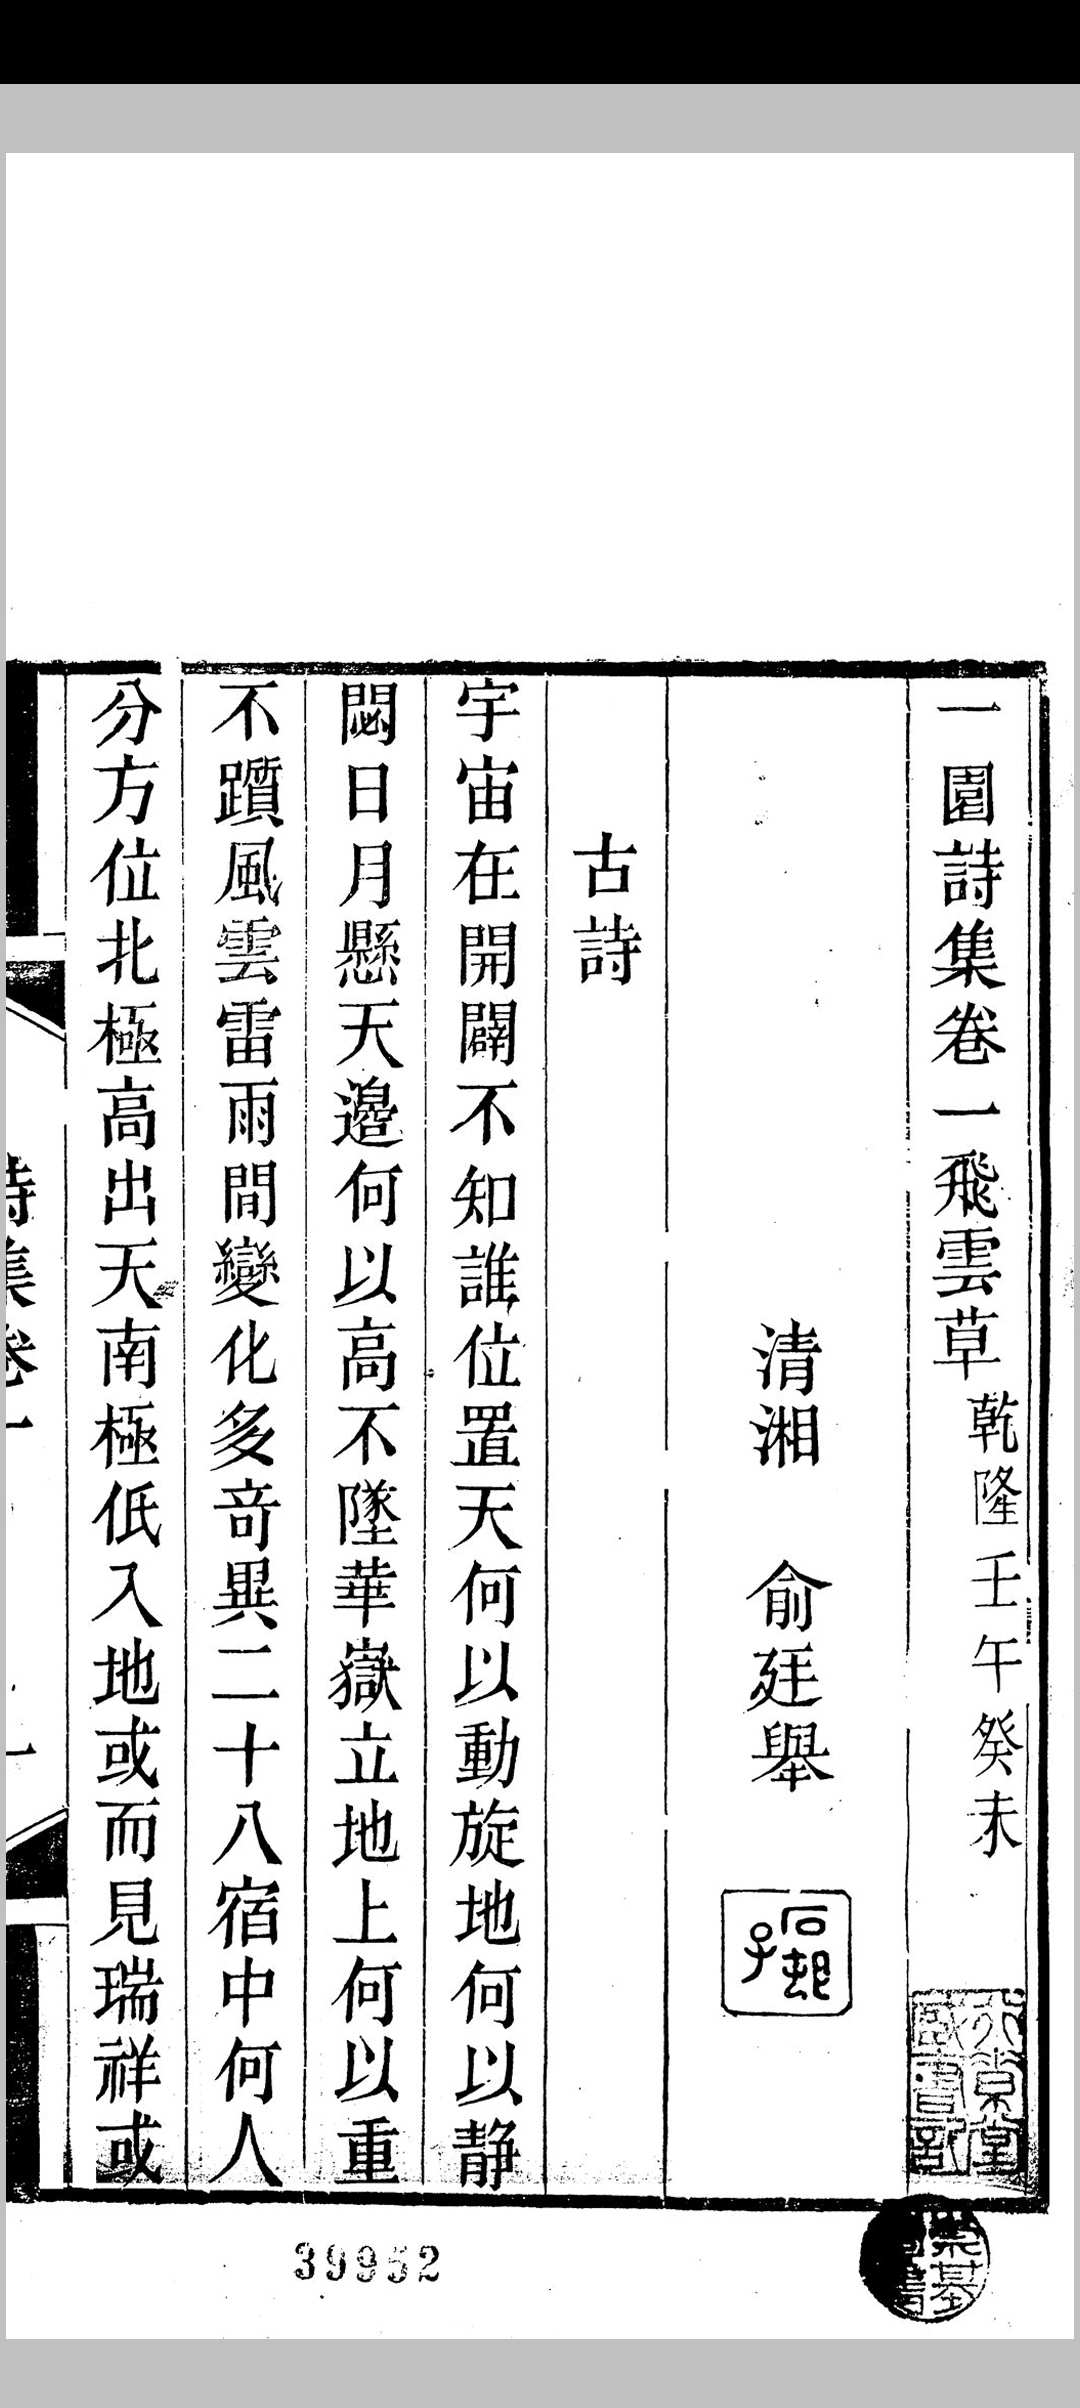 一園詩集卷一飛雲草乾隆壬午癸未
清湘 俞廷舉
古詩
宇宙在開闢不知誰位置天何以動旋地何以静
悶日月懸天邊何以高不墜華嶽立地上何以重
不躓風雲雷雨間變化多竒異二十八宿中何人
分方位北極高出天南極低入地或而見瑞祥或
詩集卷一
一
39952